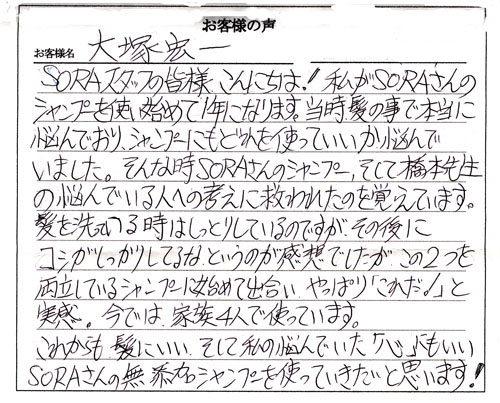 お客様の声
お客様名 大塚宏一
SORAスタッフの皆様、こんにちは!私がSORAさんの
シャンプーを使い始めて1年になります。当時髪の事で本当に
悩んでおり、シャンプーにもどれを使っていいか悩んで
いました。そんな時SORAさんのシャンプー、そして橋本先生
の悩んでいる人への考えに救われたのを覚えています。
髪を洗っている時はしっとりしているのですが、その後に
コシがしっかりしてるな、というのが感想でしたが、この2つを
両立しているシャンプーに始めて出合い、やっぱり「これだ!」と
実感。今では、家族4人で使っています。
これからも髪にいい、そして私の悩んでいた「心」にもいい
SORAさんの無添加シャンプーを使っていきたいと思います!